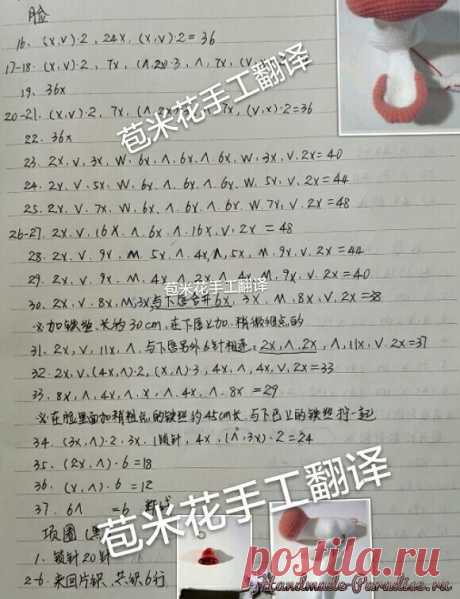 脸
16. (x,v)·2, 24x, (x,v)·2=36
17-18. (x,v)·2, 7x, 3, ∧, 7x, (v,
19. 36x
20-21. (x,v)·2, 7x, 7x, (v,x)·2=36
22. 36x
苞米花手工翻译
23. 2x, v, 3x, W, 6x, ∧, 6x, ∧, 6x, W, 3x, v, 2x=40
24. 2x, v, 5x, W, 6x, ∧, 6x, ∧, 6x, W, 5x, v, 2x=44
25. 2x, v, 7x, W, 6x, ∧, 6x, ∧, 6x, W, 7x, v, 2x=48
26-27. 2x, v, 16x, ∧, 6x, ∧, 16x, v, 2x = 48
28. 2x, v, 9x, M, 5x, ∧, 4x, ∧, 5x, M, 9x, v, 2x=44
29. 2x, v, 9x, M, 4x, ∧, 2x, ∧, 4x, M, 9x, v, 2x=40
苞米花手工翻译
30. 2x, v, 8x, M, 3x, 与下唇合并6x, 3x, M, 8x, v, 2x=38
※加铁丝, 长约30cm, 在下唇处加, 稍微细点的
31. 2x, v, 11x, ∧, 与下唇另外6针相连, 2x, ∧, 2x, ∧, 11x, v, 2x=37
32. 2x, v, (4x,∧)·2, (x,∧)·3, 4x, ∧, 4x, v, 2x=33
33. 8x, ∧, 4x, ∧, x, ∧, 4x, ∧, 8x =29
※在脸里面加稍粗点的铁丝约45cm长, 与下巴上的铁丝拧一起
34. (3x,∧)·2, 3x, 1锁针, 4x, (∧,3x)·2=24
35. (2x,∧)·6=18
36. (x,∧)·6 =12
37. 6∧ =6
苞米花手工翻译
项圈 (黑
1. 锁针20针
2-6. 来回片织, 共织6行
postila.ru
Handmade-Paradise.ru